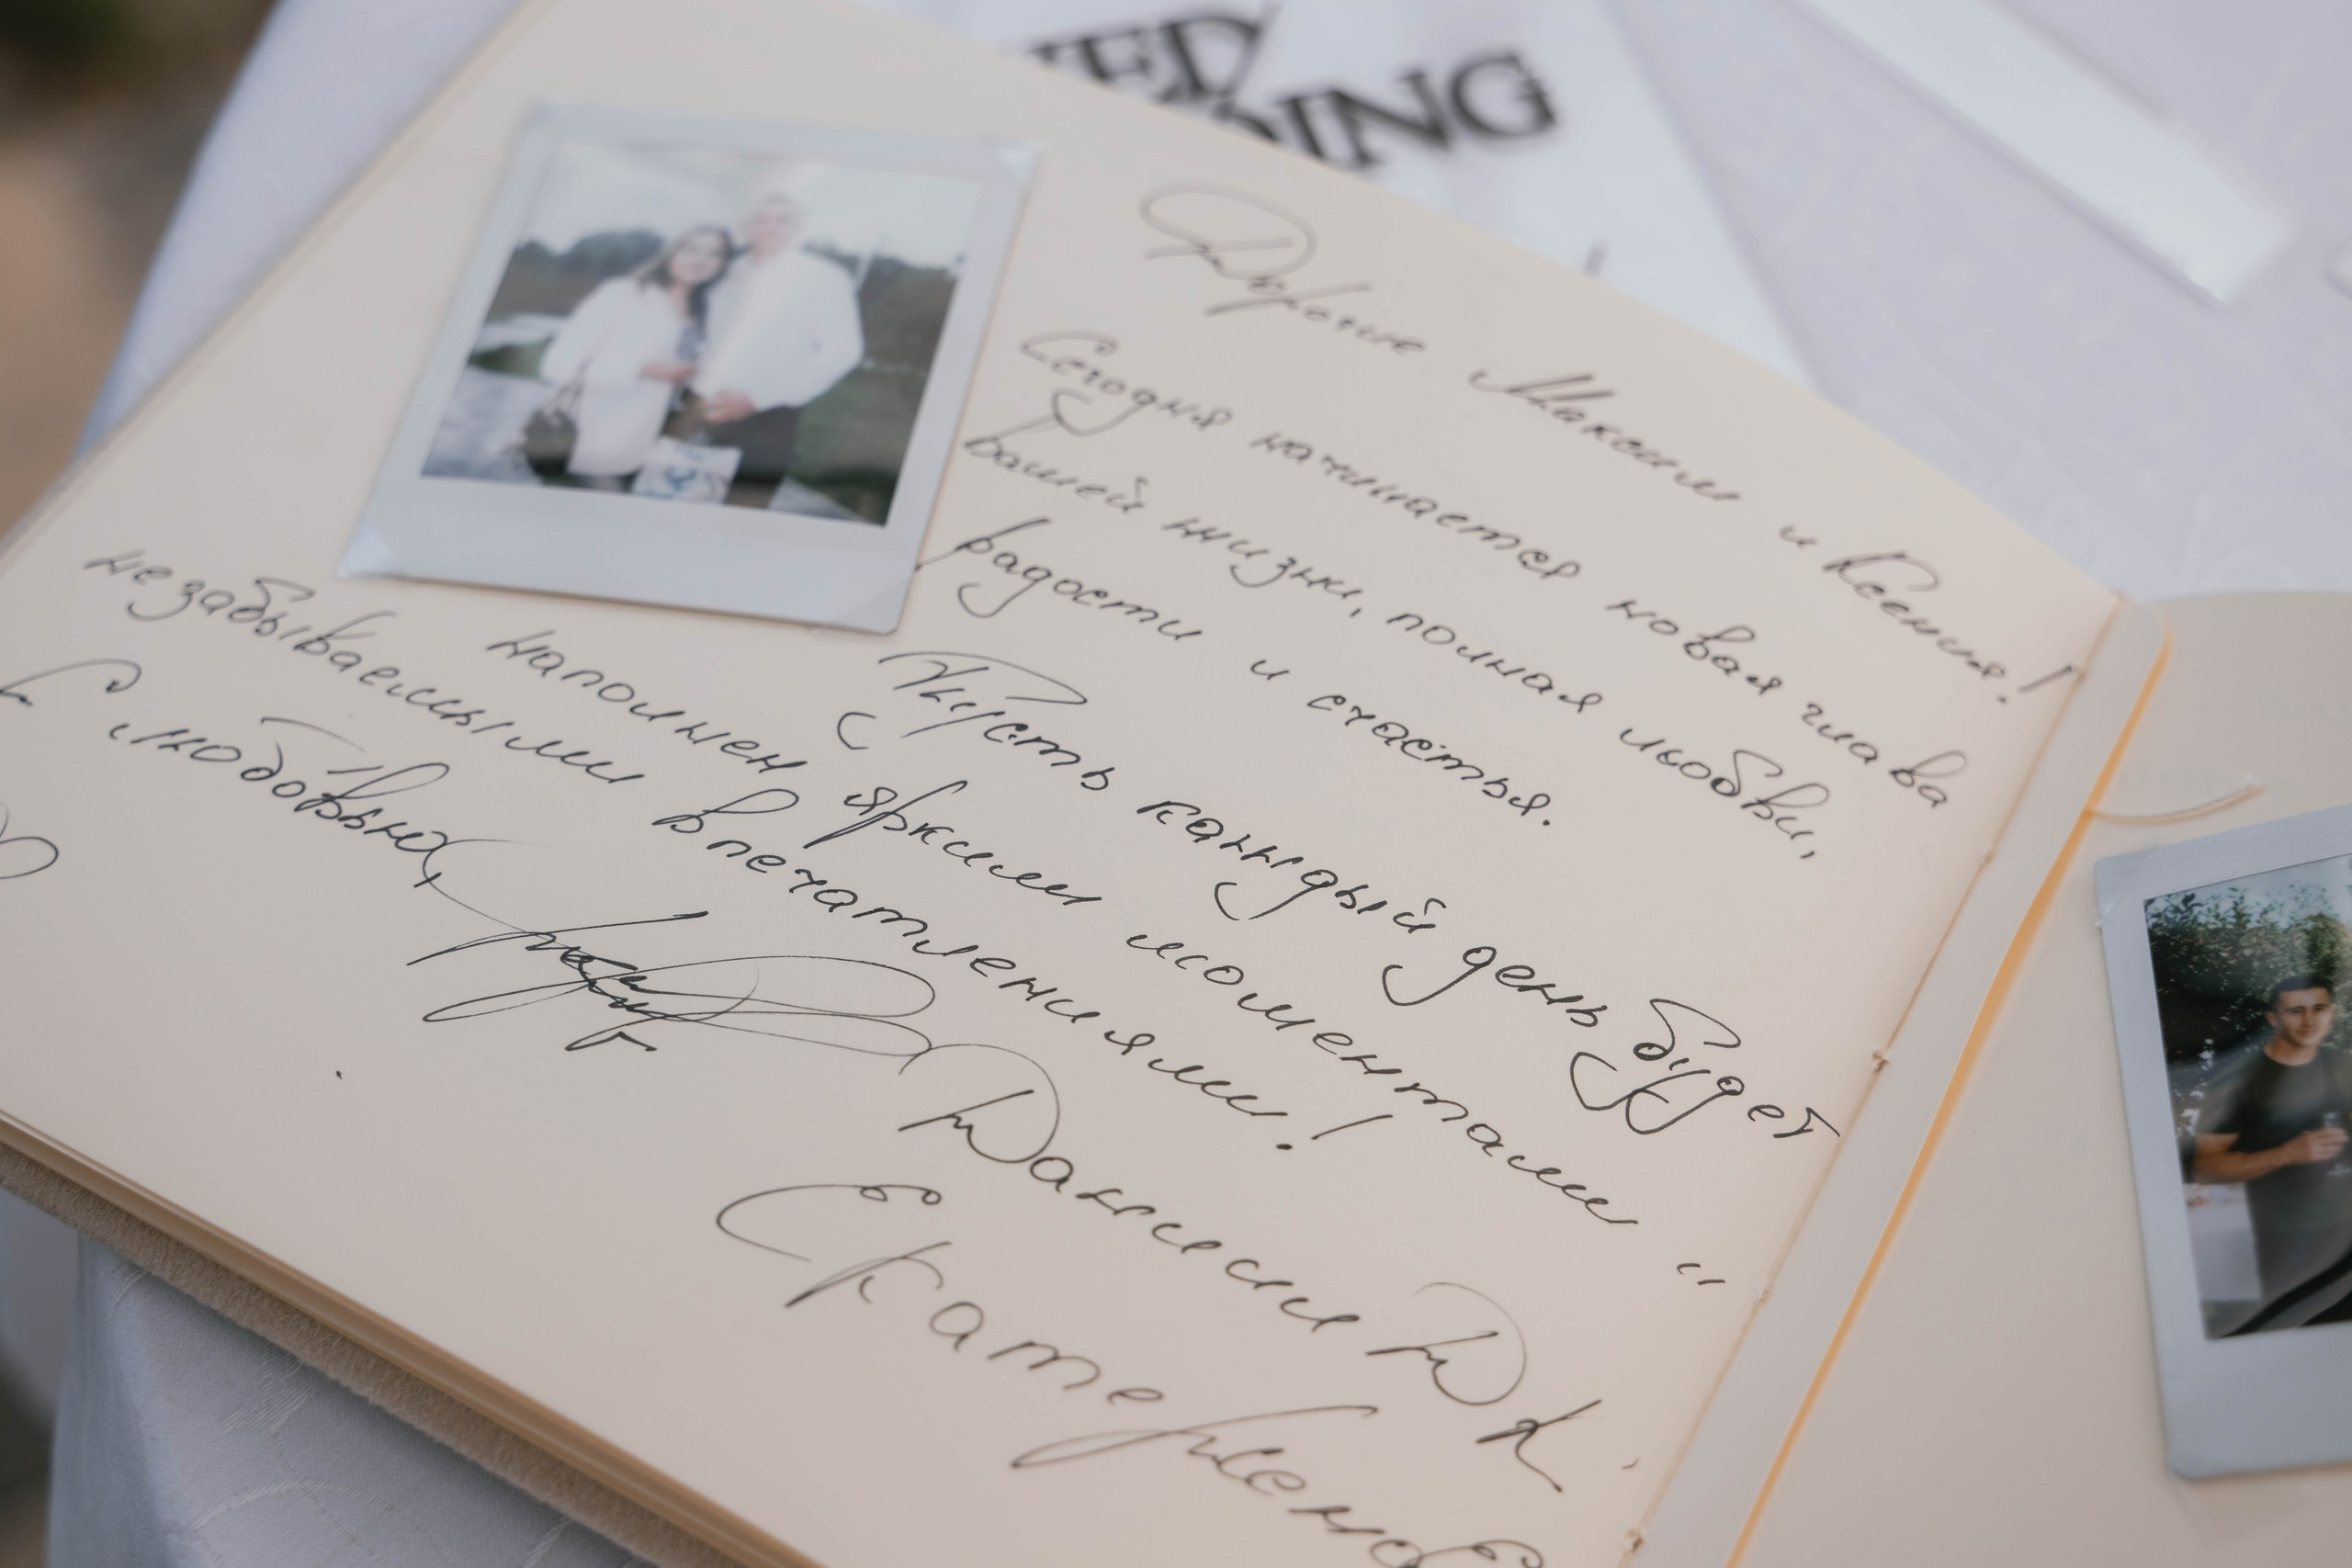 ED
DING
Дорогие Максим и Ксения!
Сегодня начинается новая глава
вашей жизни, полная любви,
радости и счастья.
Пусть каждый день будет
наполнен яркими моментами и
незабываемыми впечатлениями!
С любовью,
Даниели Д К.
Екатерина